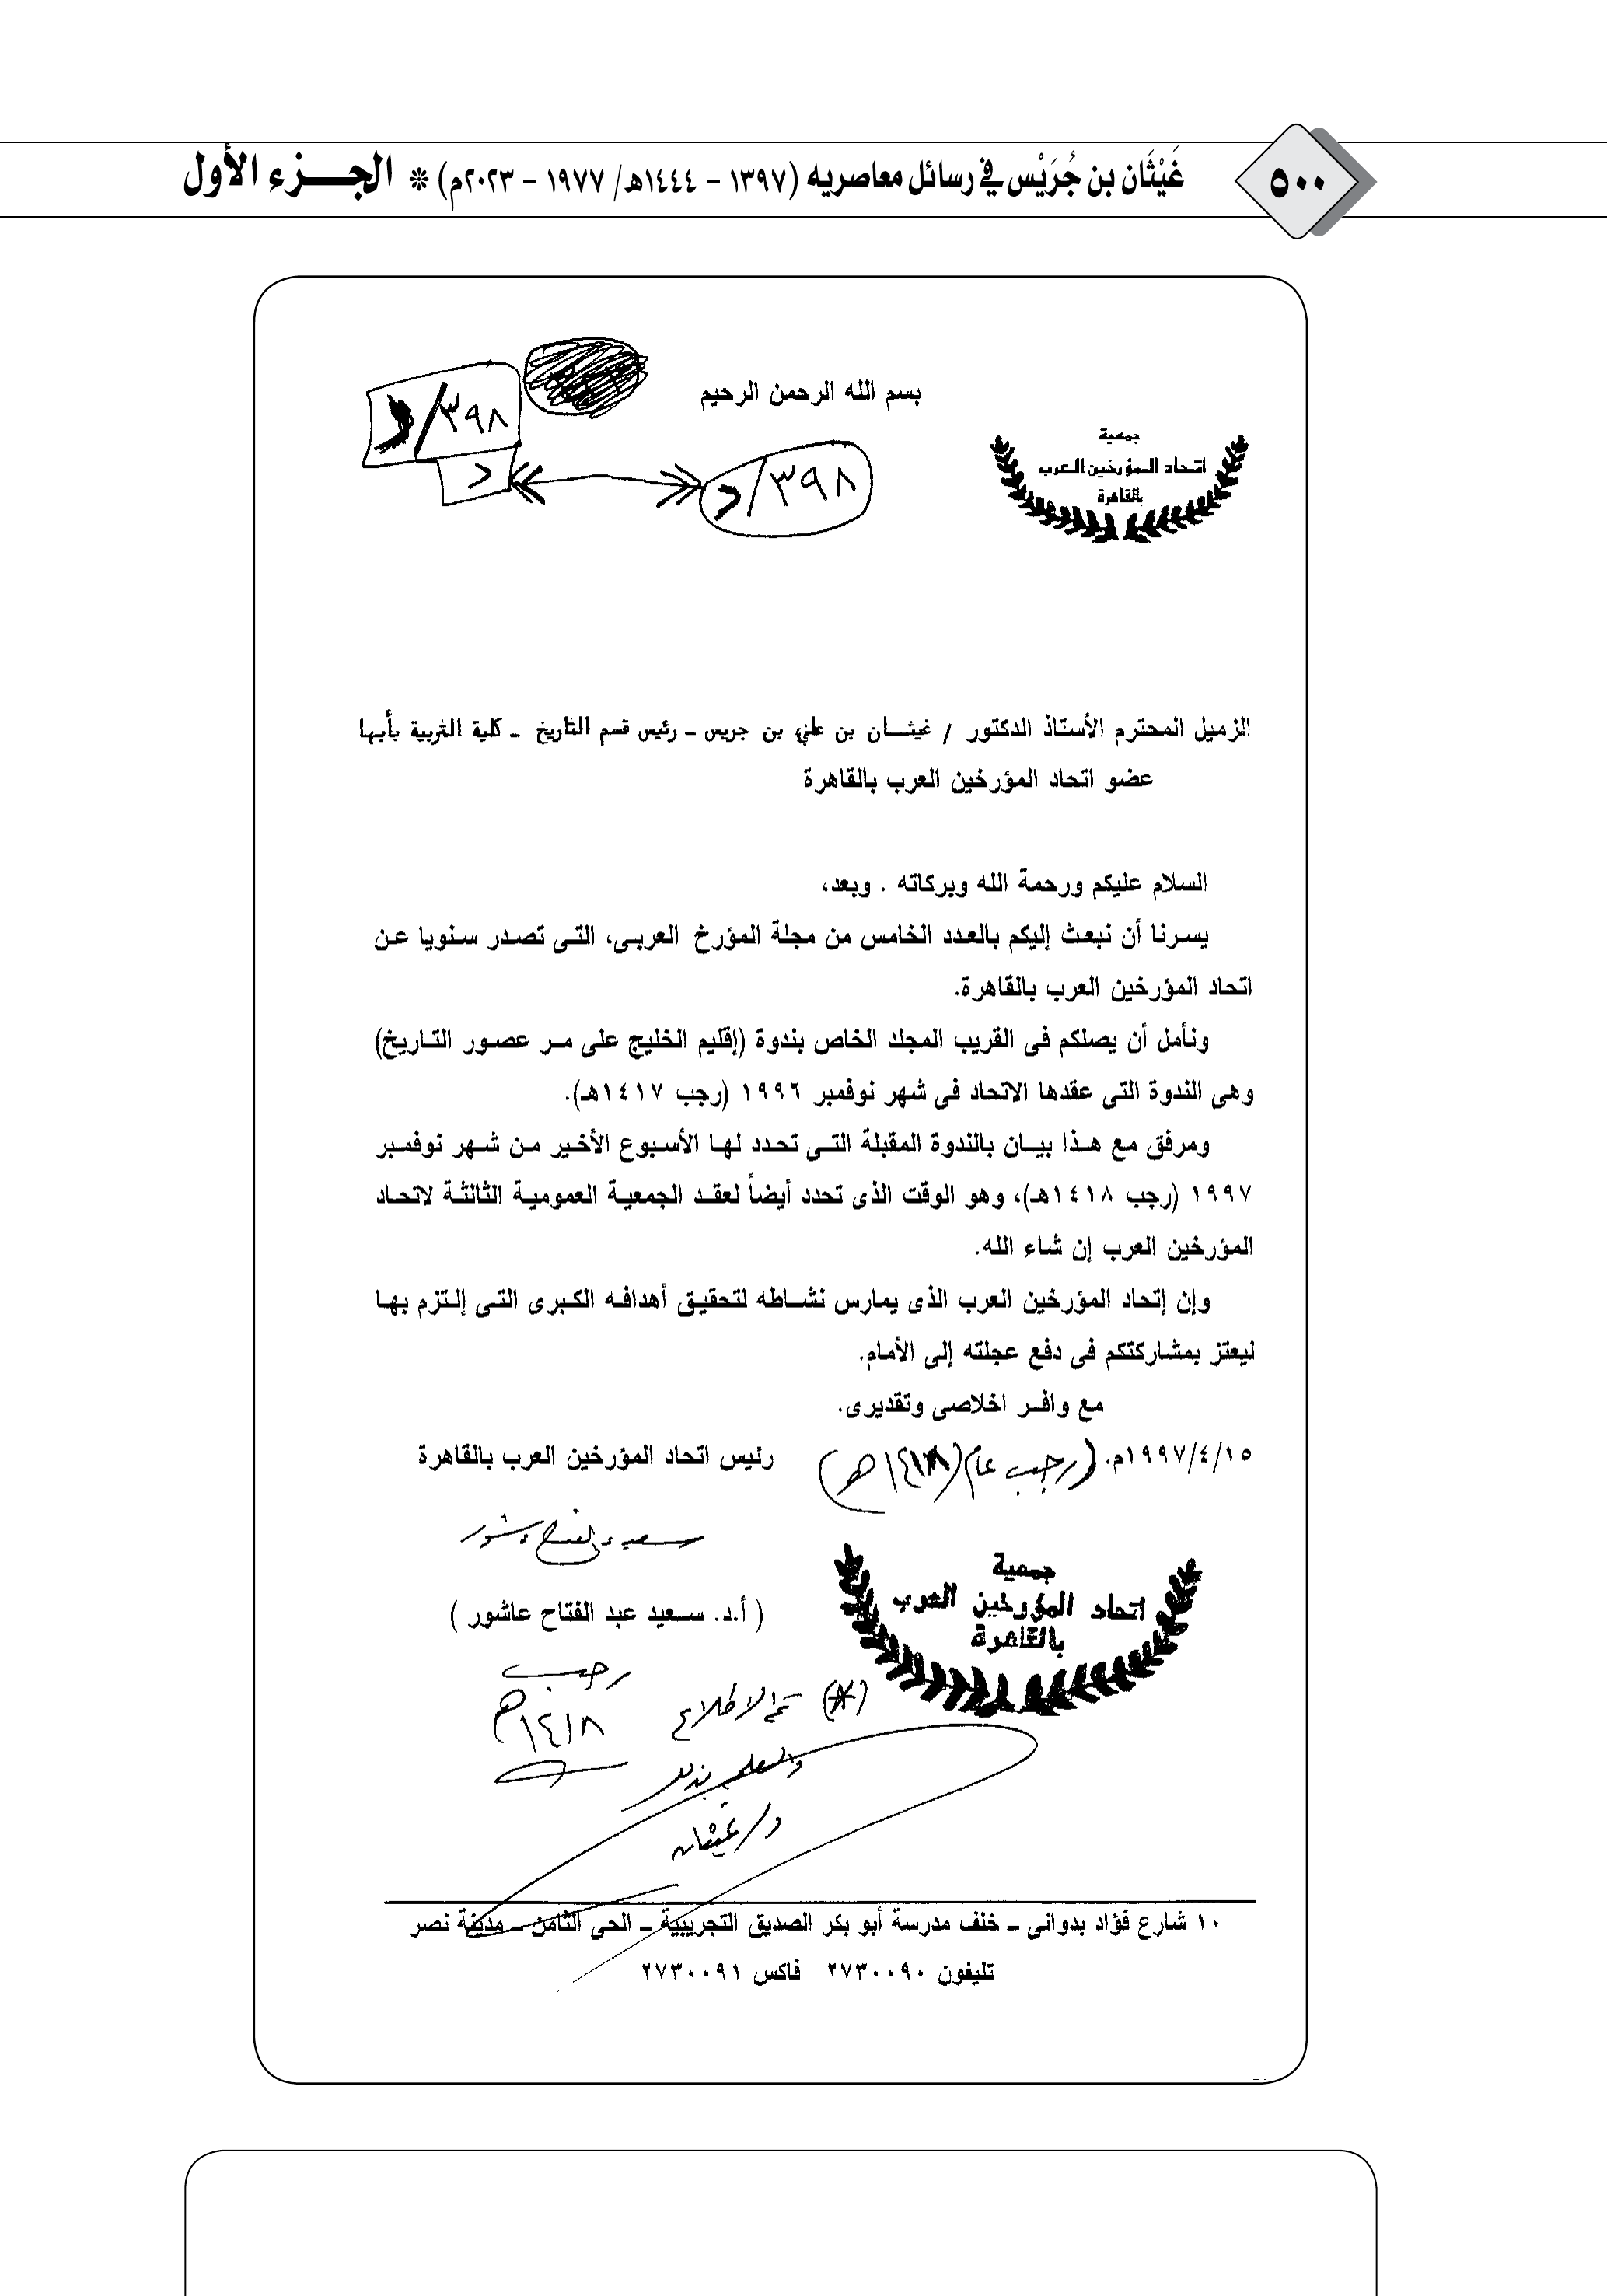 ٥٠٠
غَيْثَان بن جُرَيْس في رسائل معاصريه (١٣٩٧ - ١٤٤٤هـ/ ١٩٧٧ - ٢٠٢٣م) * الجـــزء الأول
بسم الله الرحمن الرحيم
٣٩٨/د
د
٣٩٨/د
جمعية
اتحاد المؤرخين العرب
بالقاهرة
الزميل المحترم الأستاذ الدكتور / غيثـــان بن علي بن جريس – رئيس قسم التاريخ – كلية التربية بأبها
عضو اتحاد المؤرخين العرب بالقاهرة
السلام عليكم ورحمة الله وبركاته . وبعد،
يسرنا أن نبعث إليكم بالعدد الخامس من مجلة المؤرخ العربى، التى تصدر سنويا عن
اتحاد المؤرخين العرب بالقاهرة.
ونأمل أن يصلكم فى القريب المجلد الخاص بندوة (إقليم الخليج على مر عصور التاريخ)
وهى الندوة التى عقدها الاتحاد فى شهر نوفمبر ١٩٩٦ (رجب ١٤١٧هـ).
ومرفق مع هذا بيان بالندوة المقبلة التى تحدد لها الأسبوع الأخير من شهر نوفمبر
١٩٩٧ (رجب ١٤١٨هـ)، وهو الوقت الذى تحدد أيضاً لعقد الجمعية العمومية الثالثة لاتحاد
المؤرخين العرب إن شاء الله.
وإن إتحاد المؤرخين العرب الذى يمارس نشاطه لتحقيق أهدافه الكبرى التى إلتزم بها
ليعتز بمشاركتكم فى دفع عجلته إلى الأمام.
مع وافر اخلاصى وتقديرى.
١٩٩٧/٤/١٥م. (رجب عام (١٤١٨هـ)
رئيس اتحاد المؤرخين العرب بالقاهرة
سعيد عبد الفتاح عاشور
( أ.د. سعيد عبد الفتاح عاشور )
جمعية
اتحاد المؤرخين العرب
بالقاهرة
(*) تم الاطلاع
والعلم بذلك
د/ غيثان
رجب
١٤١٨هـ
١٠ شارع فؤاد بدوانى – خلف مدرسة أبو بكر الصديق التجريبية – الحى الثامن – مدينة نصر
تليفون ٢٧٣٠٠٩٠ فاكس ٢٧٣٠٠٩١